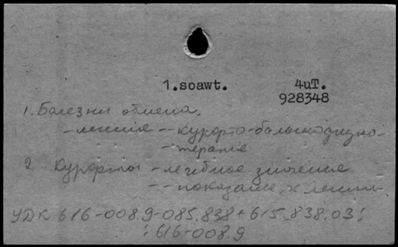 1.soawt. 4иТ.
928348
1. Болезни обмена,
- лечение -- курорто-бальнео-
- терапия
2 Курорты - лечебное значение
-- показания к лечен.
УДК 616-008.9-085.838+615.838.03:
:616-008.9